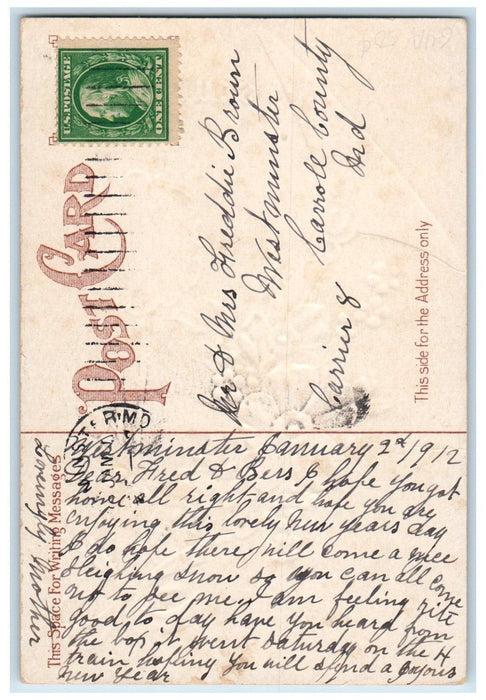 U.S. POSTAGE
ONE CENT
POST CARD
Mr & Mrs Freddie Brown
Westminster
Carrole County
Carrier 8 Md
This side for the Address only
This Space For Writing Messages
Westminster January 2d 1912
Dear Fred & Bess I hope you got
home all right and hope you are
enjoying this lovely new years day
I do hope there will come a nice
sleighing snow so you can all come
out to see me I am feeling rite
good to day have you heard from
the box it went Saturday on the 4
train hoping you will spend a joyous
new year
Lovingly Mother